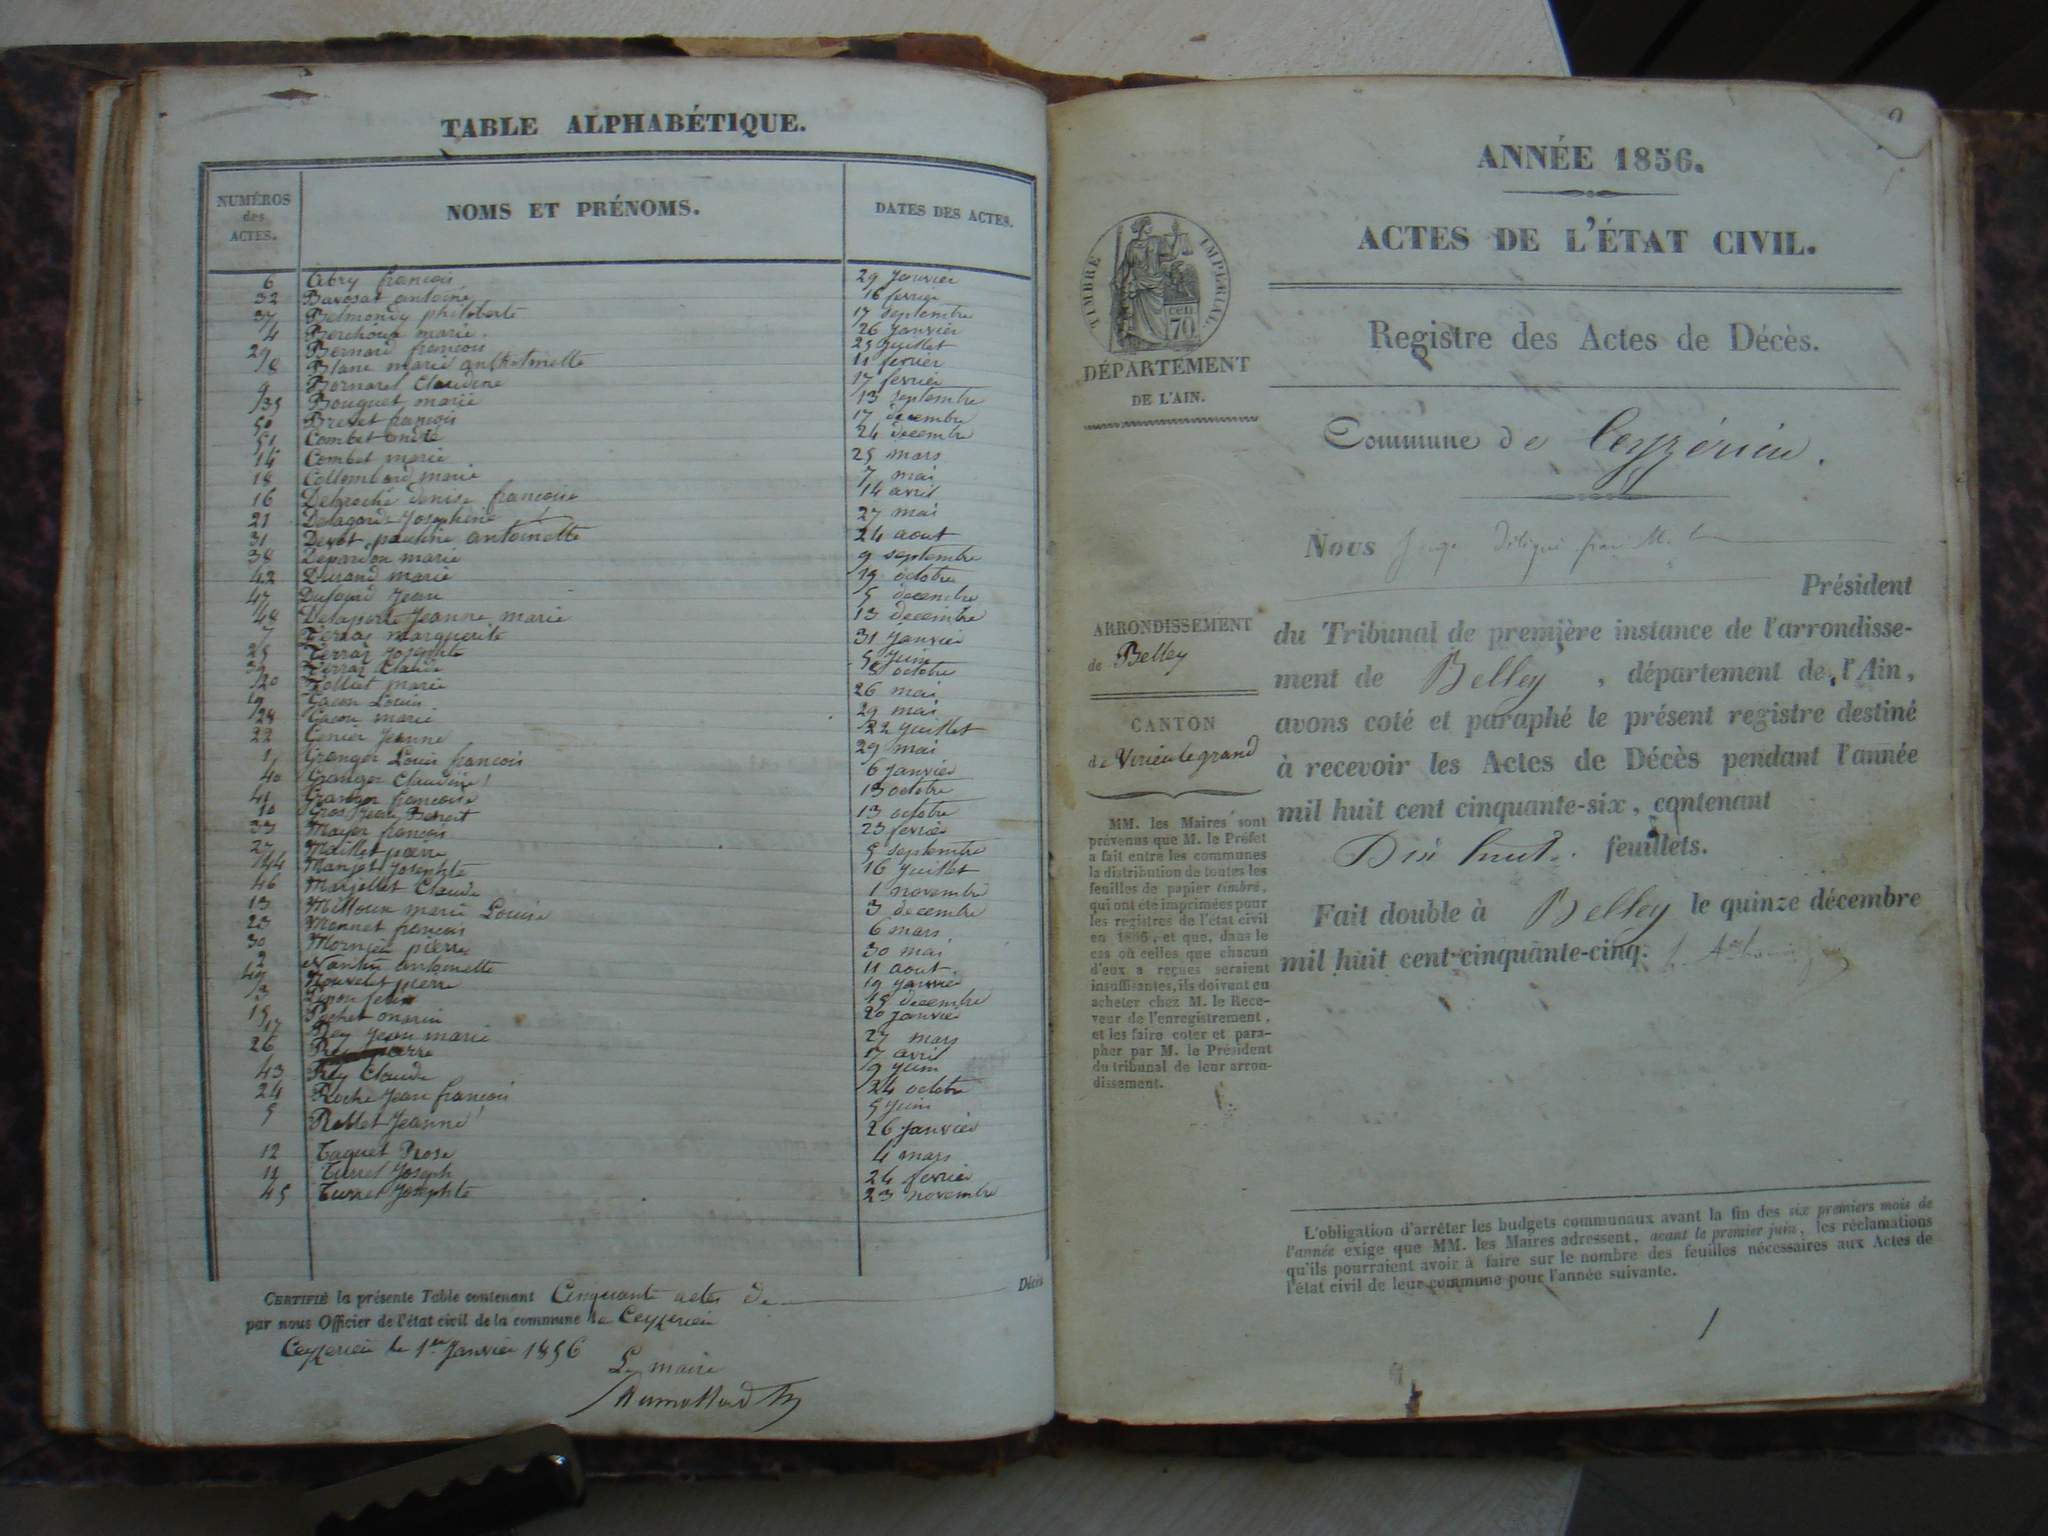 TABLE ALPHABÉTIQUE.
NUMÉROS des ACTES.
NOMS ET PRÉNOMS.
DATES DES ACTES.
6 Abry françois 29 Janvier
32 Bavosat antoine 16 fevrier
37 Belmondy philiberte 17 septembre
4 Berchoux marie. 26 Janvier
29 Bernard françois 25 Juillet
8 Blanc marie anthelmette 11 fevrier
9 Bornarel Claudine 17 fevrier
35 Bouquet marie 13 septembre
50 Brevet françois 17 decembre
51 Combet andré 24 decembre
14 Combet marie 25 mars
18 Collombard marie 7 mai
16 Debroche denise francoise 14 avril
21 Delagarde Josephine 27 mai
31 Devot pauline antoinette 24 aout
38 Depardon marie 9 septembre
42 Durand marie 19 octobre
47 Dufourd Jean 5 decembre
48 Delaporte Jeanne marie 13 decembre
7 ferras marguerite 31 Janvier
25 ferras Josephte 5 Juin
39 ferras Claude 8 octobre
20 folliet marie 26 mai
19 Gacon Louis 29 mai
28 Gacon marie 22 Juillet
22 Genier Jeanne 29 mai
1 Granger Louis francois 6 janvier
40 Granger Claudine 13 octobre
41 Granger francoise 13 octobre
10 Gros Jean Benoit 23 fevrier
33 Mayer francois 5 septembre
27 Maillet pierre 16 Juillet
44 Manjot Josephte 1 novembre
46 Marjollet Claude 3 decembre
13 Milloux marie Louise 6 mars
23 Monnet francois 30 mai
30 Mornieu pierre 11 aout.
2 Nantin antoinette 19 janvier
49 Nouvelet pierre 15 decembre
3 felix 20 janvier
15 Pochet marie 27 mars
17 Rey Jean marie 17 avril
26 9 Juin
43 Rey Claude 24 octobre
24 Roche Jean francois 5 Juin
5 Rollet Jeanne 26 Janvier
12 Taquet Rose 4 mars
11 Turrel Joseph 24 fevrier
45 Turrel Josephte 23 novembre
CERTIFIÉ la présente Table contenant Cinquante actes de Décès
par nous Officier de l'état civil de la commune de Ceyzerieu
Ceyzerieu le 1er Janvier 1856
Le maire
ANNÉE 1856.
ACTES DE L'ÉTAT CIVIL.
TIMBRE IMPÉRIAL.
cen. 70
DÉPARTEMENT
DE L'AIN.
Registre des Actes de Décès.
Commune de Ceyzérieu.
Nous Juge Délégué par M. le
Président
du Tribunal de première instance de l'arrondisse-
ment de Belley, département de l'Ain,
avons coté et paraphé le présent registre destiné
à recevoir les Actes de Décès pendant l'année
mil huit cent cinquante-six, contenant
Dix huit. feuillets.
Fait double à Belley le quinze décembre
mil huit cent-cinquante-cinq.
ARRONDISSEMENT
de Belley
CANTON
de Virieu le grand
MM. les Maires sont
prévenus que M. le Préfet
a fait entre les communes
la distribution de toutes les
feuilles de papier timbré,
qui ont été imprimées pour
les registres de l'état civil
en 1856, et que, dans le
cas où celles que chacun
d'eux a reçues seraient
insuffisantes, ils doivent en
acheter chez M. le Rece-
veur de l'enregistrement,
et les faire coter et para-
pher par M. le Président
du tribunal de leur arron-
dissement.
L'obligation d'arrêter les budgets communaux avant la fin des six premiers mois de
l'année exige que MM. les Maires adressent, avant le premier juin, les réclamations
qu'ils pourraient avoir à faire sur le nombre des feuilles nécessaires aux Actes de
l'état civil de leur commune pour l'année suivante.
1